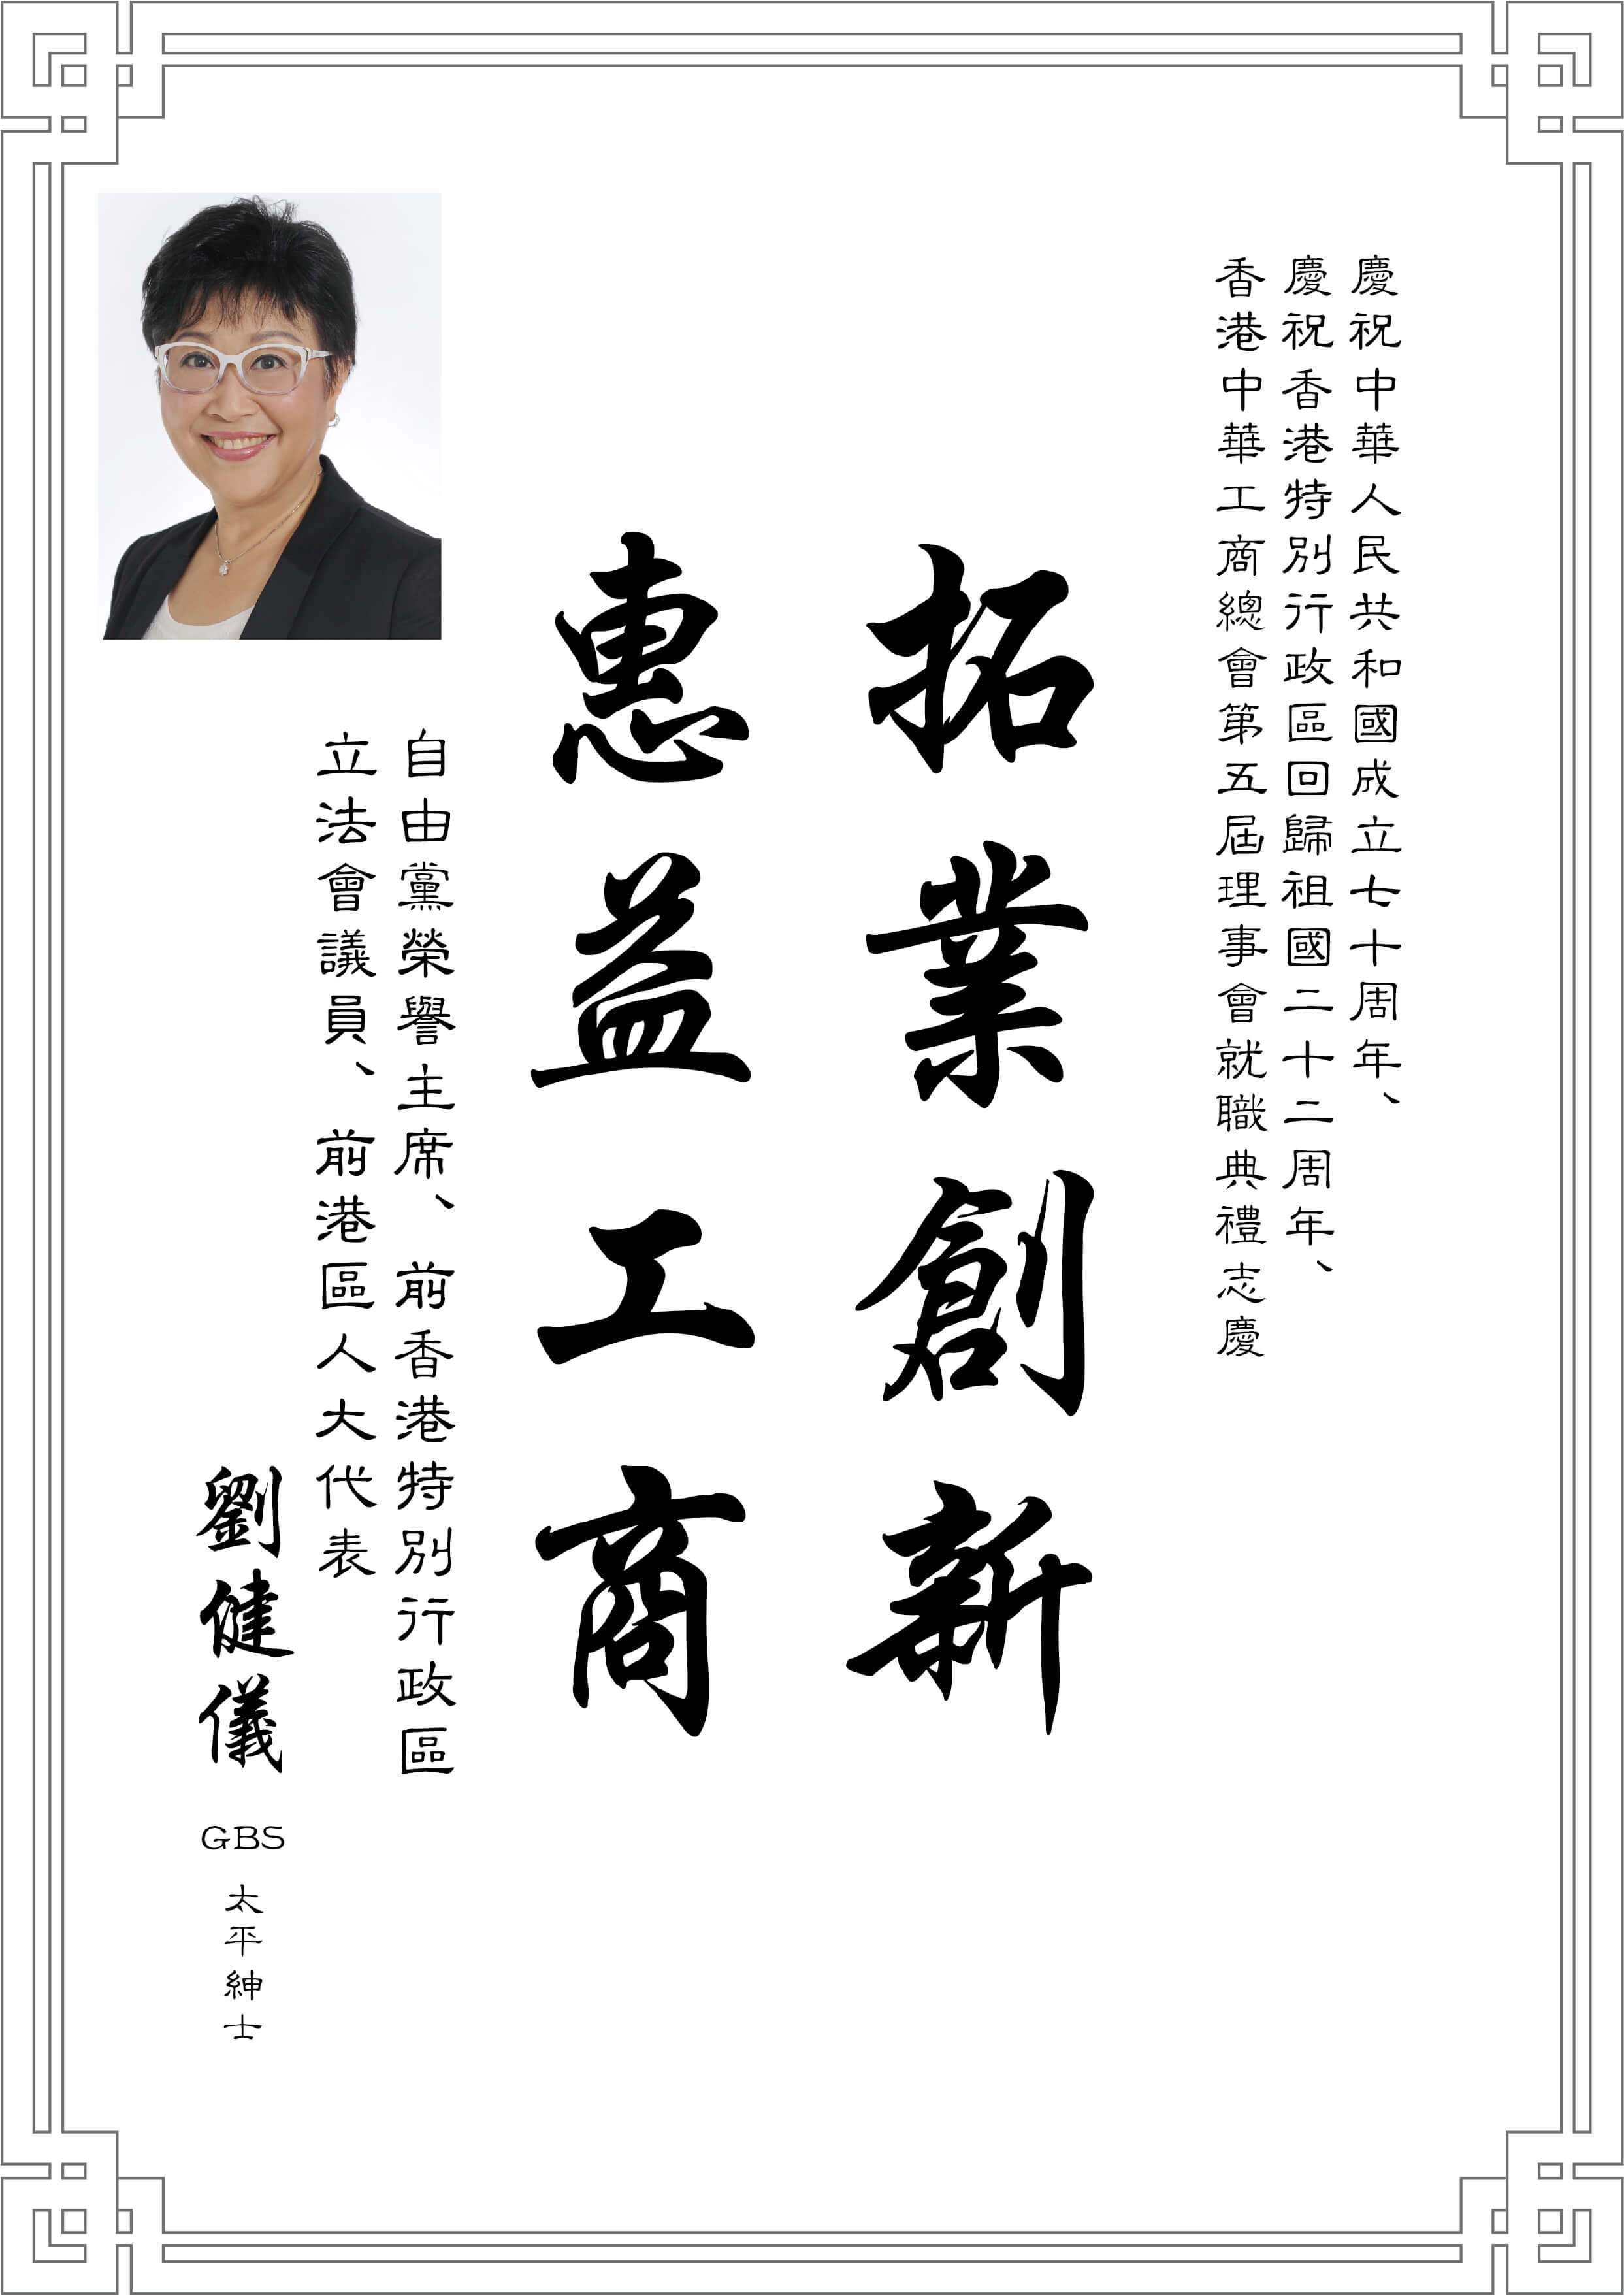 慶祝中華人民共和國成立七十周年、
慶祝香港特別行政區回歸祖國二十二周年、
香港中華工商總會第五屆理事會就職典禮志慶
拓業創新
惠益工商
自由黨榮譽主席、前香港特別行政區
立法會議員、前港區人大代表
劉健儀 GBS 太平紳士